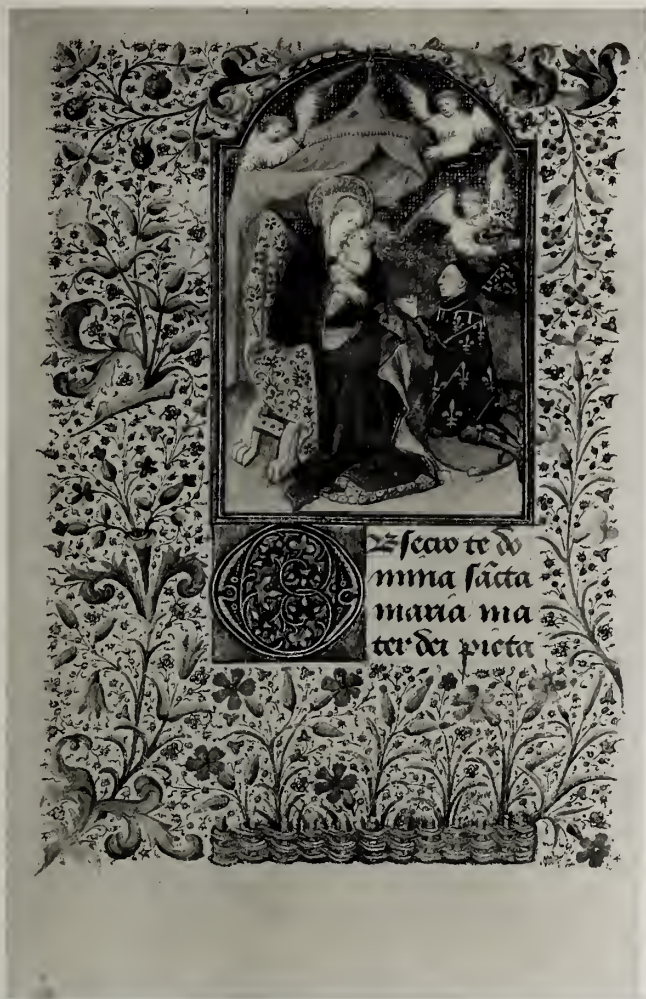 OBsecro te do
mina sc̄ta
maria ma
ter dei pieta